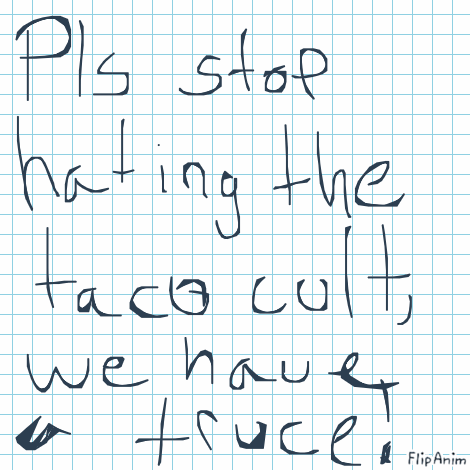 Pls stop
hating the
taco cult,
we have
a truce!
FlipAnim